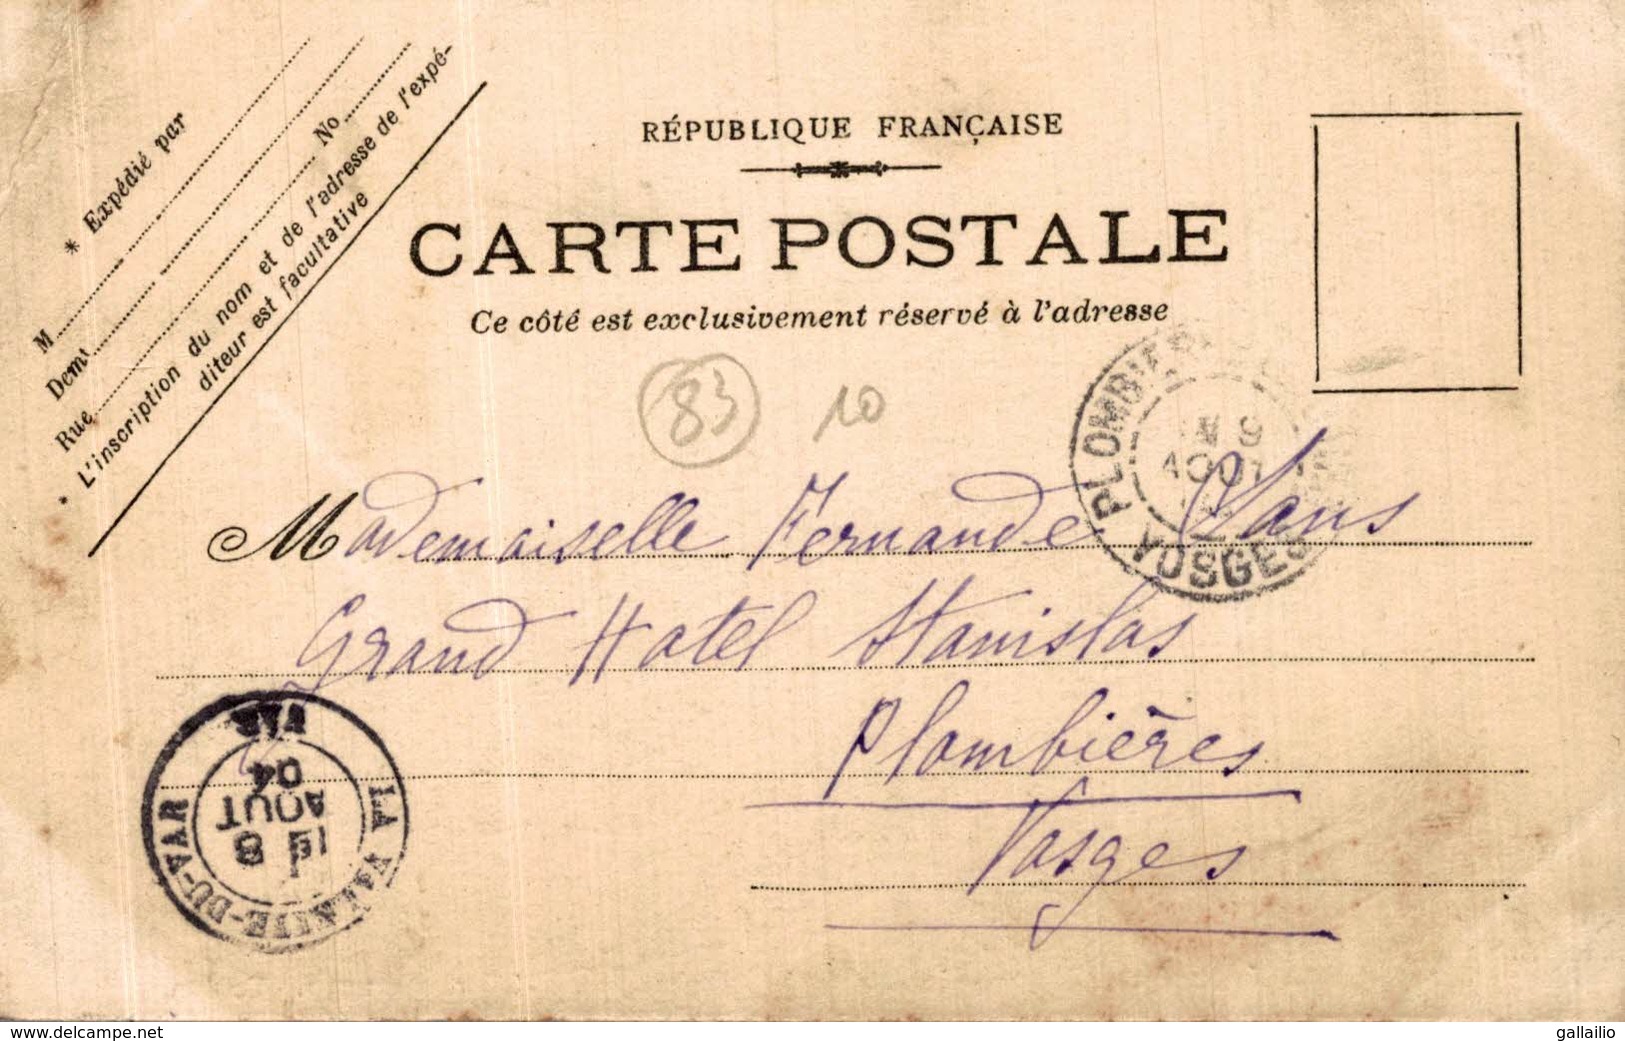 * Expédié par
M
Demt
Rue No
* L'inscription du nom et de l'adresse de l'expé-
diteur est facultative
RÉPUBLIQUE FRANÇAISE
CARTE POSTALE
Ce côté est exclusivement réservé à l'adresse
83 10
PLOMBIÈRES
9
AOUT
VOSGES
Mademoiselle Fernande
Grand Hotel Stanislas
Plombières
Vosges
LA VALETTE-DU-VAR
1E 8
AOUT
04
VAR
www.delcampe.net
gallailio